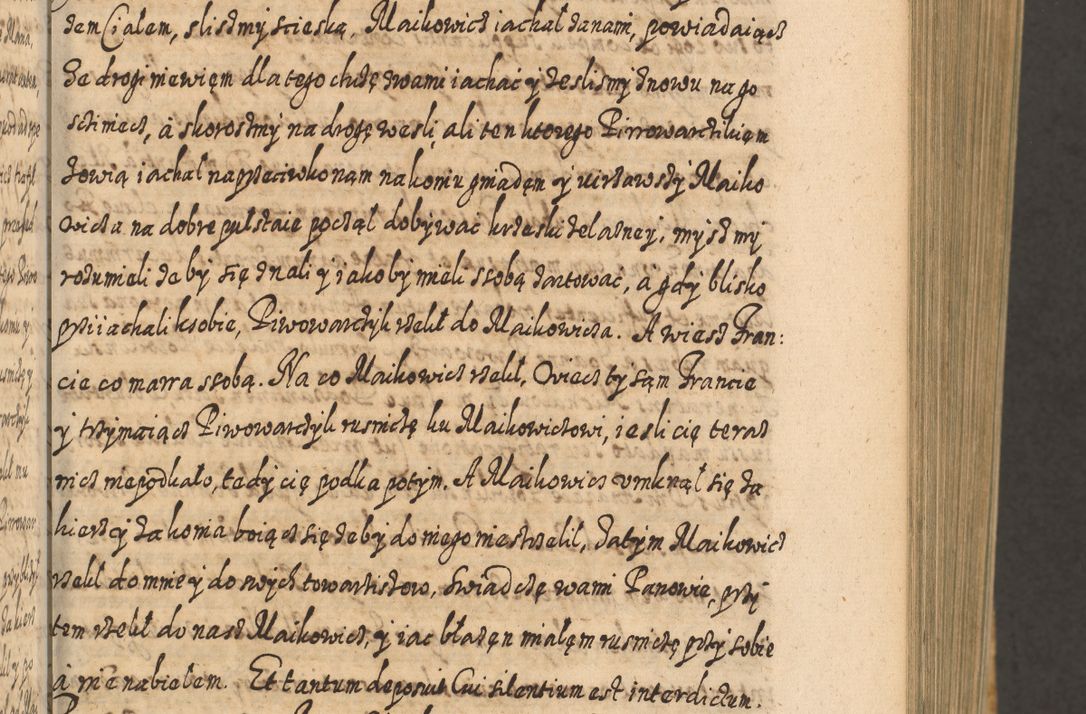 dem Ciałem, slismy scieską, Maikowicz iachał zanami, powiadaiącz
ze drogi niewięm dlatego chczę zwami iachać y ześlismy znowu na go
scziniecz, á skorosmy na drogę weśli, ali ten ktorego Piwowarczikięm
zowią iachał naprzeciwko nąm na koniu gniadęm y uirzawszy Maiko
wicza na dobre pułstaie począł dobywać krzeski zelazney, myszmy
rozumieli zeby się znali y iakoby mieli zsobą zartować, a gdy blisko
przyiachali ksobie, Piwowarczyk rzekł do Maikowicza. A wiesz Fran:
cie co marra zsobą. Na co Maikowicz rzekł, Owiecz ty sąm Francie
y trzymaiącz Piwowarczyk rusniczę ku Maikowiczowi, iesli cię teraz
nicz niepodkało, tedy cię podka potym. A Maikowicz vmknął się za
kierz y za konia boiącz się zeby do niego niestrzelił, zatym Maikowicz
rzekł do mnie y do inych towarziszow, swiadczę wami Panowie, przy
tem rzekł do nasz Maikowicz, y iac błazęn miałęm rusniczę przy sobie
á nie nabiełem. Et tantum deposuit Cui silentium est interdictum.